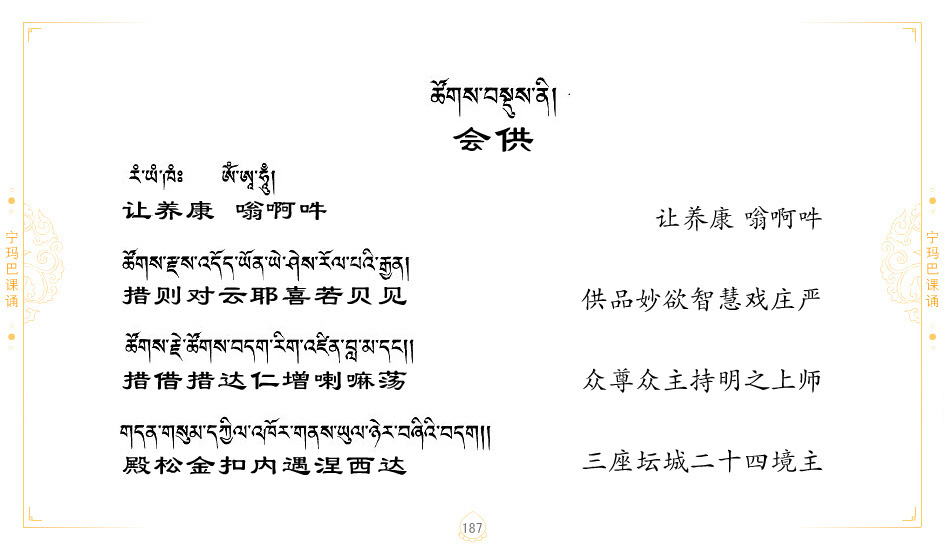 ཚོགས་བསྡུས་ནི།
会供
རཾ་ཡཾ་ཁཾཿ ཨོཾ་ཨཱཿ་ཧཱུྃ།
让养康 嗡啊吽
让养康 嗡啊吽
ཚོགས་རྫས་འདོད་ཡོན་ཡེ་ཤེས་རོལ་པའི་རྒྱན།
措则对云耶喜若贝见
供品妙欲智慧戏庄严
ཚོགས་རྗེ་ཚོགས་བདག་རིག་འཛིན་བླ་མ་དང༌།།
措借措达仁增喇嘛荡
众尊众主持明之上师
གདན་གསུམ་དཀྱིལ་འཁོར་གནས་ཡུལ་ཉེར་བཞིའི་བདག།
殿松金扣内遇涅西达
三座坛城二十四境主
宁玛巴课诵
宁玛巴课诵
187